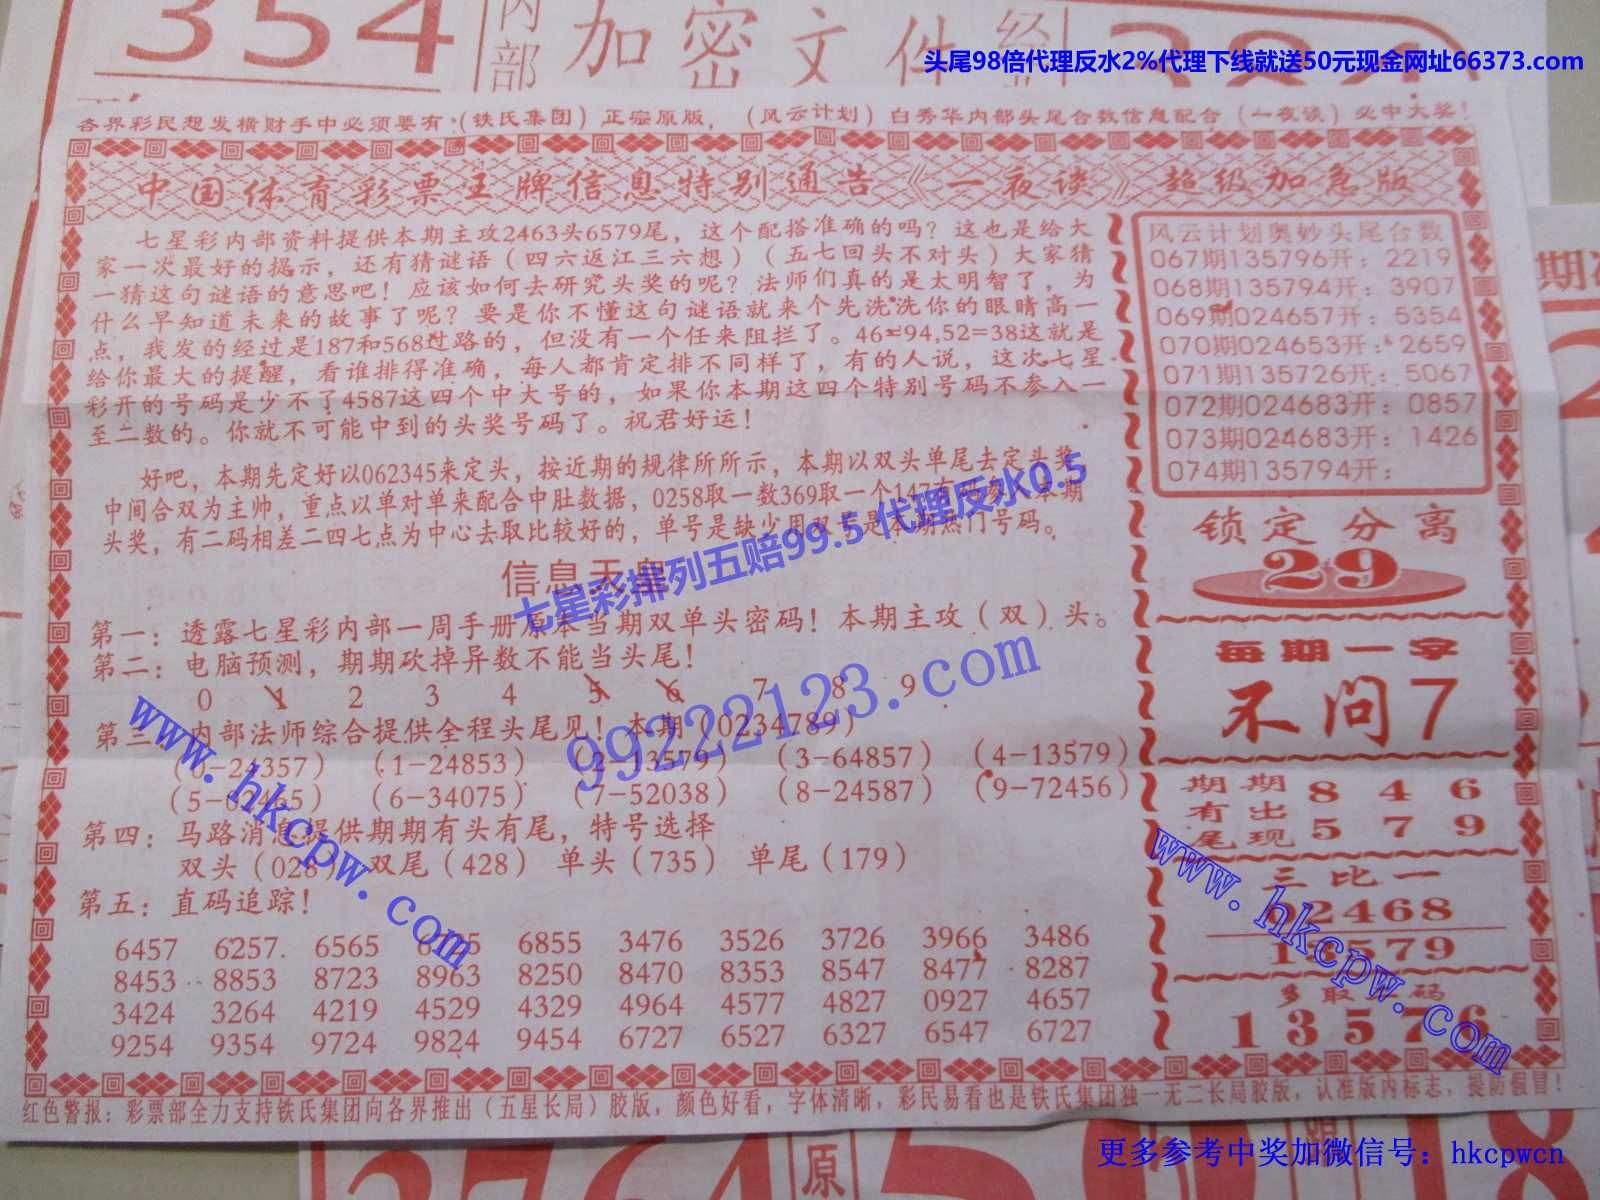 354 内部 加密文件 经
头尾98倍代理反水2%代理下线就送50元现金网址66373.com
各界彩民想发横财手中必须要有:(铁氏集团)正宗原版,(风云计划)白秀华内部头尾合数信息配合(一夜谈)必中大奖!
中国体育彩票王牌信息特别通告《一夜谈》超级加急版
七星彩内部资料提供本期主攻2463头6579尾,这个配搭准确的吗?这也是给大
家一次最好的提示,还有猜谜语(四六返江三六想)(五七回头不对头)大家猜
一猜这句谜语的意思吧!应该如何去研究头奖的呢?法师们真的是太明智了,为
什么早知道未来的故事了呢?要是你不懂这句谜语就来个先洗洗你的眼睛高一
点,我发的经过是187和568过路的,但没有一个任来阻拦了。46=94,52=38这就是
给你最大的提醒,看谁排得准确,每人都肯定排不同样了,有的人说,这次七星
彩开的号码是少不了4587这四个中大号的,如果你本期这四个特别号码不参入一
至二数的。你就不可能中到的头奖号码了。祝君好运!
好吧,本期先定好以062345来定头,按近期的规律所所示,本期以双头单尾去定头奖
中间合双为主帅,重点以单对单来配合中肚数据,0258取一数369取一个147 本期
头奖,有二码相差二四七点为中心去取比较好的,单号是缺少用双号是本期热门号码。
七星彩排列五赔99.5代理反水0.5
信息天皇
第一:透露七星彩内部一周手册原本当期双单头密码!本期主攻(双)头。
第二:电脑预测,期期砍掉异数不能当头尾!
0 1 2 3 4 5 6 7 8 9
第三:内部法师综合提供全程头尾见!本期(0234789)
(-24357) (1-24853) (2-13579) (3-64857) (4-13579)
(5-02465) (6-34075) (7-52038) (8-24587) (9-72456)
第四:马路消息提供期期有头有尾,特号选择
双头(028) 双尾(428) 单头(735) 单尾(179)
第五:直码追踪!
6457 6257 6565 6855 3476 3526 3726 3966 3486
8453 8853 8723 8963 8250 8470 8353 8547 8477 8287
3424 3264 4219 4529 4329 4964 4577 4827 0927 4657
9254 9354 9724 9824 9454 6727 6527 6327 6547 6727
风云计划奥妙头尾合数
067期135796开:2219
068期135794开:3907
069期024657开:5354
070期024653开:2659
071期135726开:5067
072期024683开:0857
073期024683开:1426
074期135794开:
锁定分离
29
每期一字
不问7
期期 8 4 6
有出
尾现 5 7 9
三比一
02468
13579
多取 码
1 3 5 7 6
www.hkcpw.com
99222123.com
www.hkcpw.com
红色警报:彩票部全力支持铁氏集团向各界推出(五星长局)胶版,颜色好看,字体清晰,彩民易看也是铁氏集团独一无二长局胶版,认准版内标志,提防假冒!
原
更多参考中奖加微信号:hkcpwcn